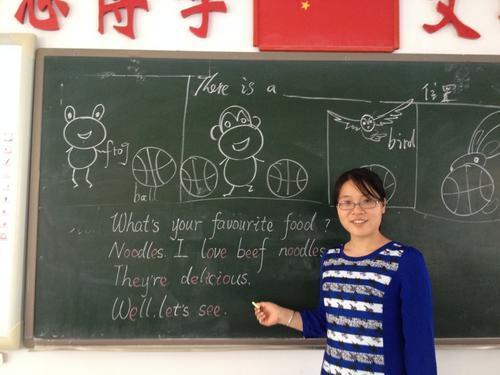 There is a
位置
frog
bird
ball
What's your favourite food?
Noodles. I love beef noodles
They're delicious.
Well, let's see.